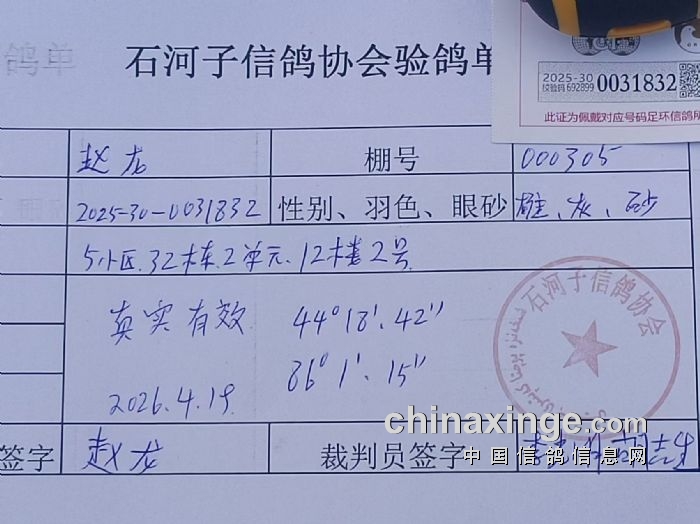 鸽单
石河子信鸽协会验鸽单
2025-30
校验码692899
0031832
此证为佩戴对应号码足环信鸽所
赵龙 棚号 000305
2025-30-0031832 性别、羽色、眼砂 雄、灰、砂
5小区.32栋.2单元.12楼2号
真实有效 44°18'.42"
86°1'.15"
2026.4.19
石河子信鸽协会
chinaxinge.com
中国信鸽信息网
签字 赵龙 裁判员签字